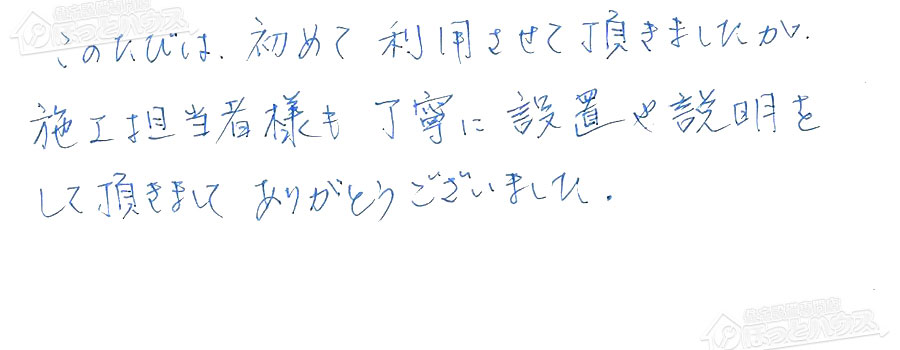 このたびは、初めて利用させて頂きましたが、
施工担当者様も丁寧に設置や説明を
して頂きまして ありがとうございました。
住宅設備専門店
ほっとハウス
住宅設備専門店
ほっとハウス